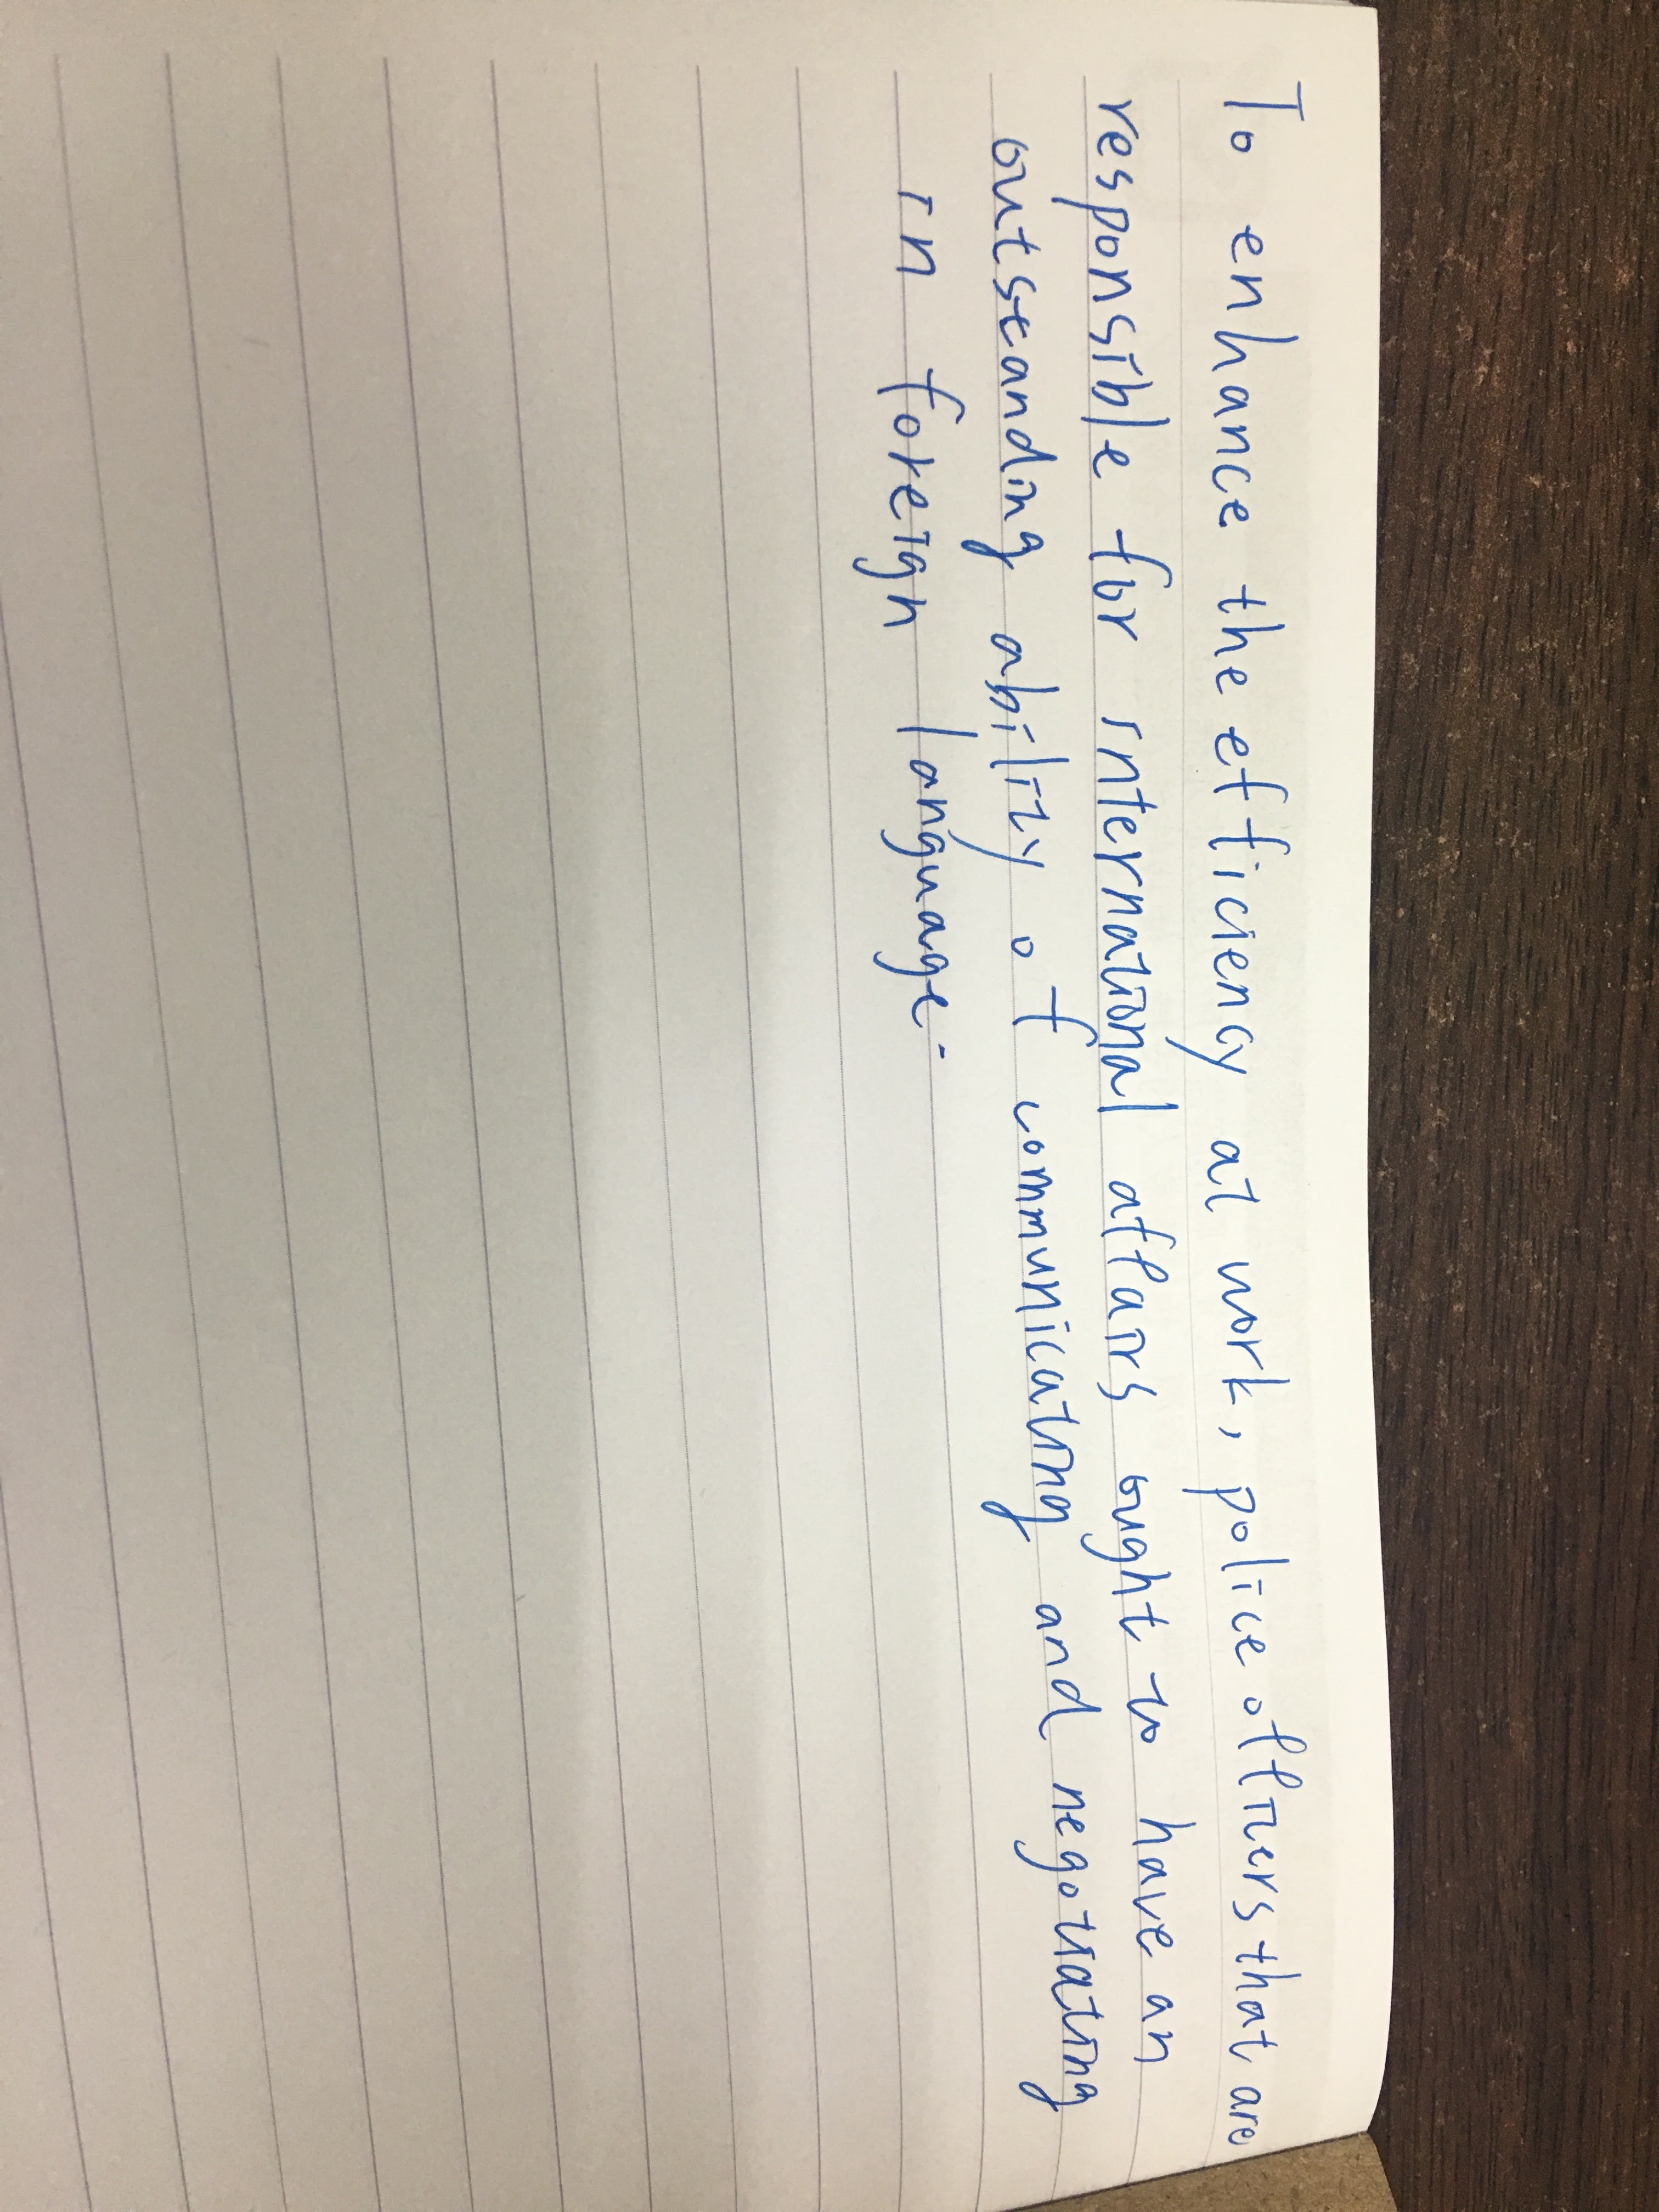 To enhance the efficiency at work, police officers that are
responsible for international affairs ought to have an
outstanding ability of communicating and negotiating
in foreign language.